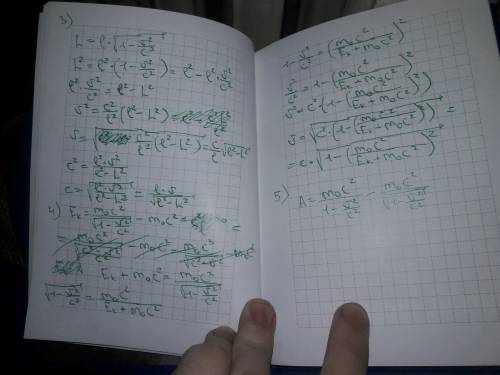 3)
L = l · √(1 - v²/c²)
L² = l² · (1 - v²/c²) = l² - l² · v²/c²
l² · v²/c² = l² - L²
v² = c²/l² (l² - L²)
v = √(c²/l² (l² - L²)) = c/l √(l² - L²)
c² = l² · v²/(l² - L²)
c = √(l² · v²/(l² - L²)) = l · v/√(l² - L²)
4) Eₖ = m₀c²/√(1 - v²/c²) - m₀c² =
Eₖ + m₀c² = m₀c²/√(1 - v²/c²)
√(1 - v²/c²) = m₀c²/(Eₖ + m₀c²)
1 - v²/c² = (m₀c²/(Eₖ + m₀c²))²
v²/c² = 1 - (m₀c²/(Eₖ + m₀c²))²
v² = c² · (1 - (m₀c²/(Eₖ + m₀c²))²)
v = √(c² · (1 - (m₀c²/(Eₖ + m₀c²))²)) =
= c · √(1 - (m₀c²/(Eₖ + m₀c²))²)
5) A = m₀c²/(1 - v²/c²) - m₀c²/√(1 - v²/c²)